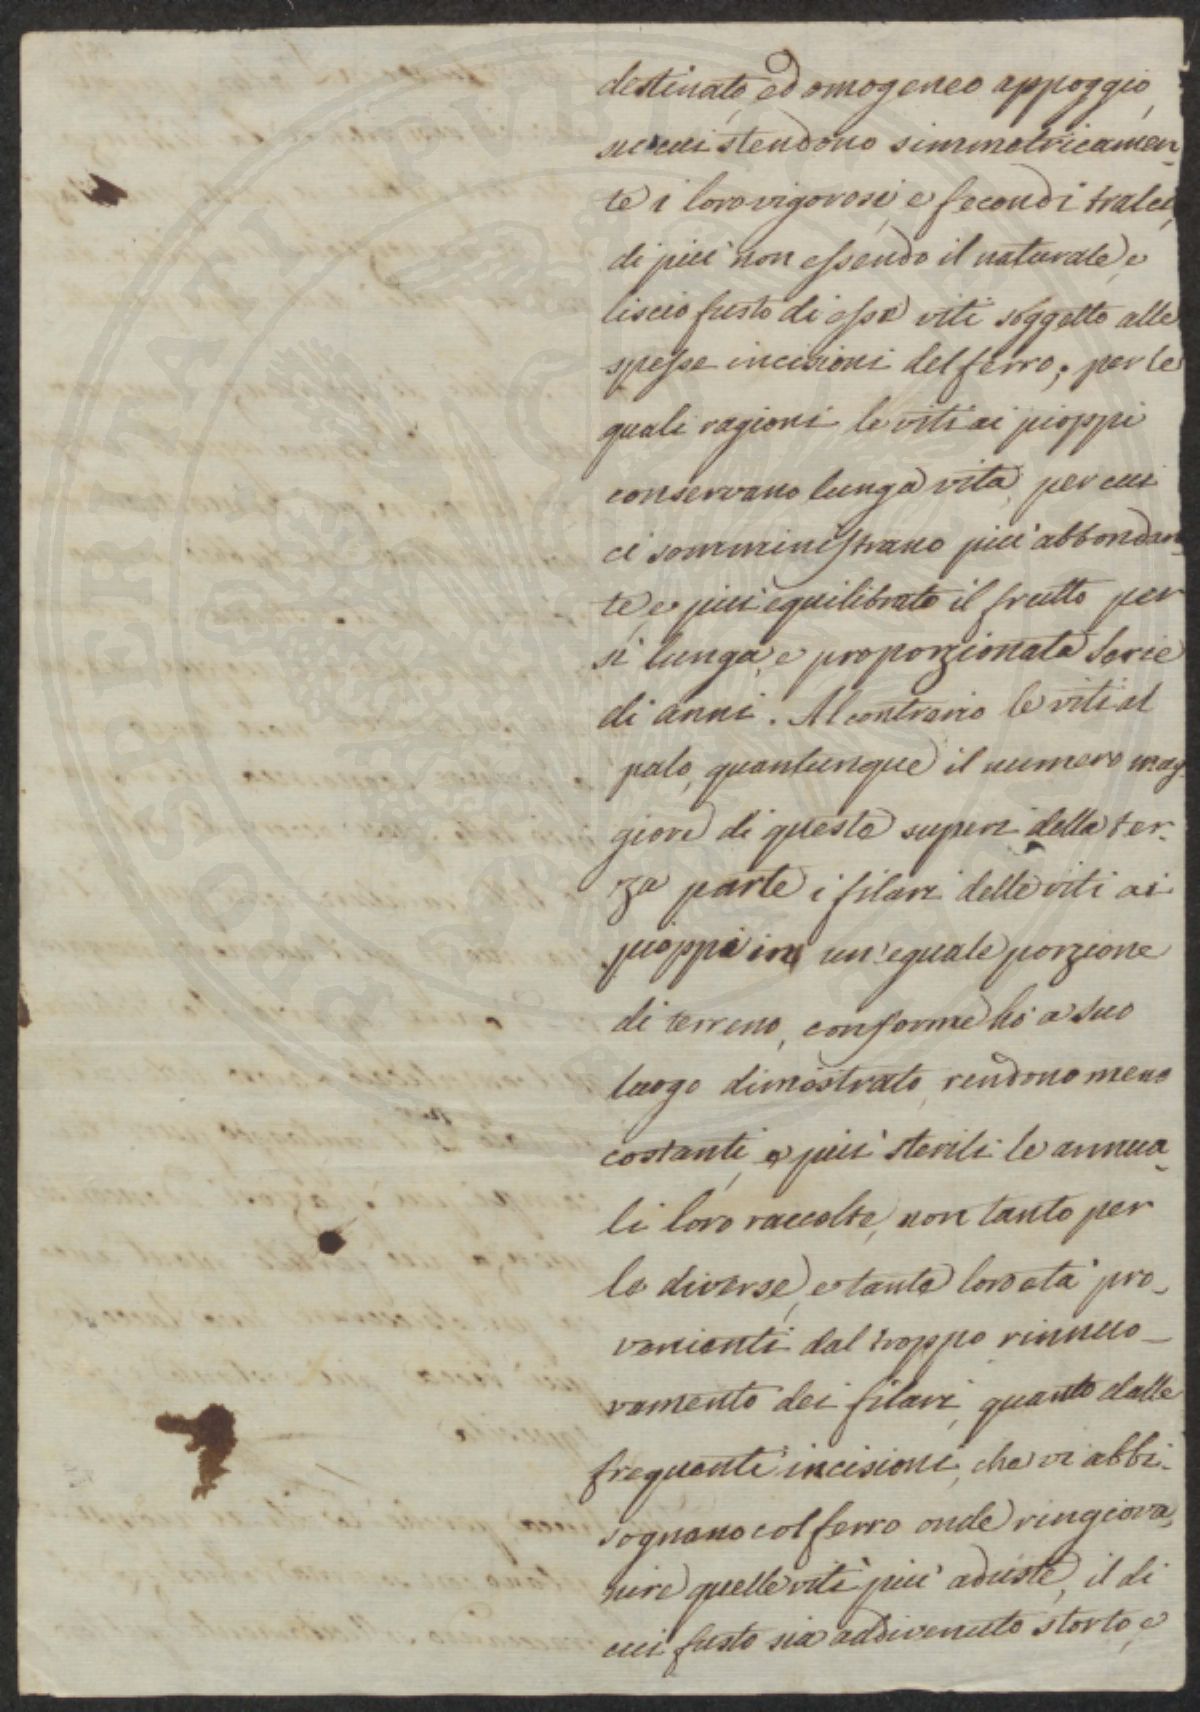 destinato, ed omogeneo appoggio,
su cui stendono simmetricamen-
te i loro vigorosi, e fecondi tralci,
di più non essendo il naturale, e
liscio fusto di esse viti soggetto alle
spesse incisioni del ferro; per le
quali ragioni le viti ai pioppi
conservano lunga vita, per cui
ci somministrano più abbondan-
te, e più equilibrato il frutto per
sì lunga, e proporzionata serie
di anni. Al contrario le viti al
palo, quantunque il numero mag-
giore di queste superi della ter-
za parte i filari delle viti ai
pioppi in un'eguale porzione
di terreno, conforme hò a suo
luogo dimostrato, rendono meno
costanti, e più sterili le annua-
li loro raccolte, non tanto per
le diverse, e tante loro età pro-
venienti dal troppo rinnuo-
vamento dei filari, quanto dalle
frequenti incisioni, che vi abbi-
sognano col ferro onde ringiova-
nire quelle viti più aduste, il di
cui fusto sia addivenuto storto, e